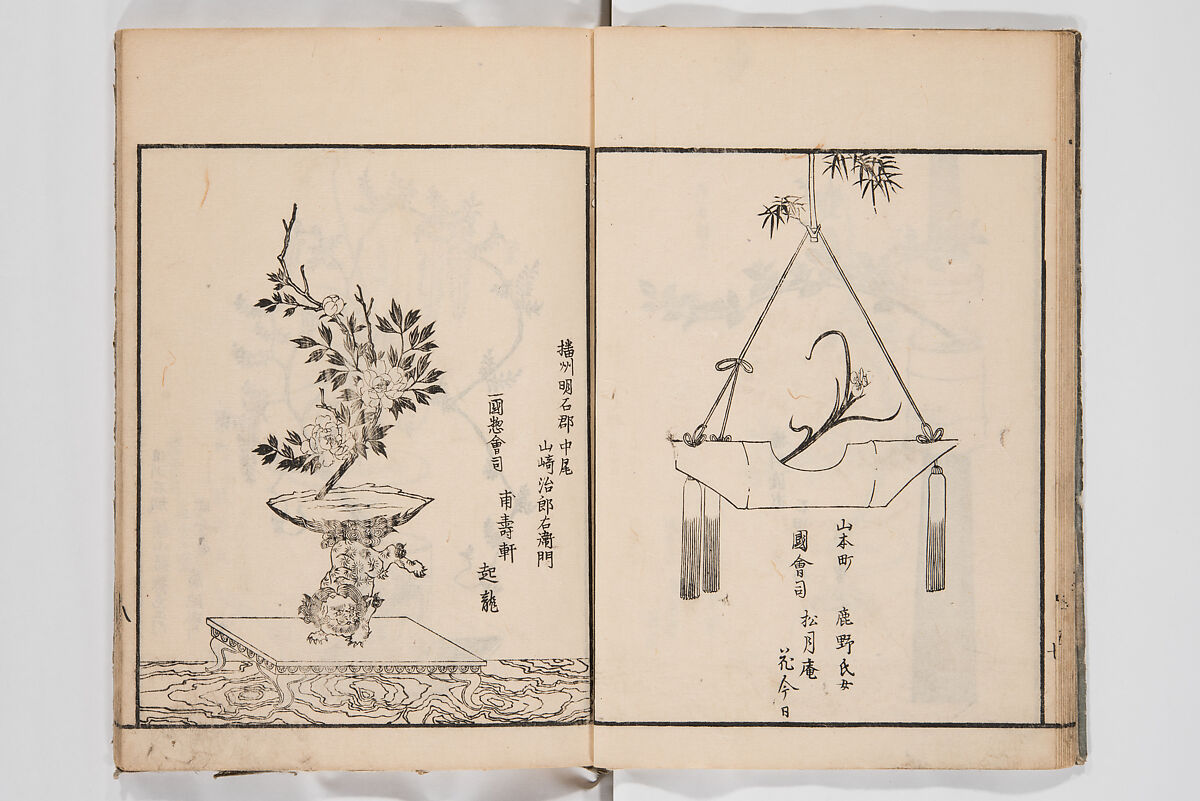 山本町　鹿野氏女
國會司　松月庵
花今日
播州明石郡中尾
山崎治郎右衛門
一國惣會司　甫壽軒
起龍